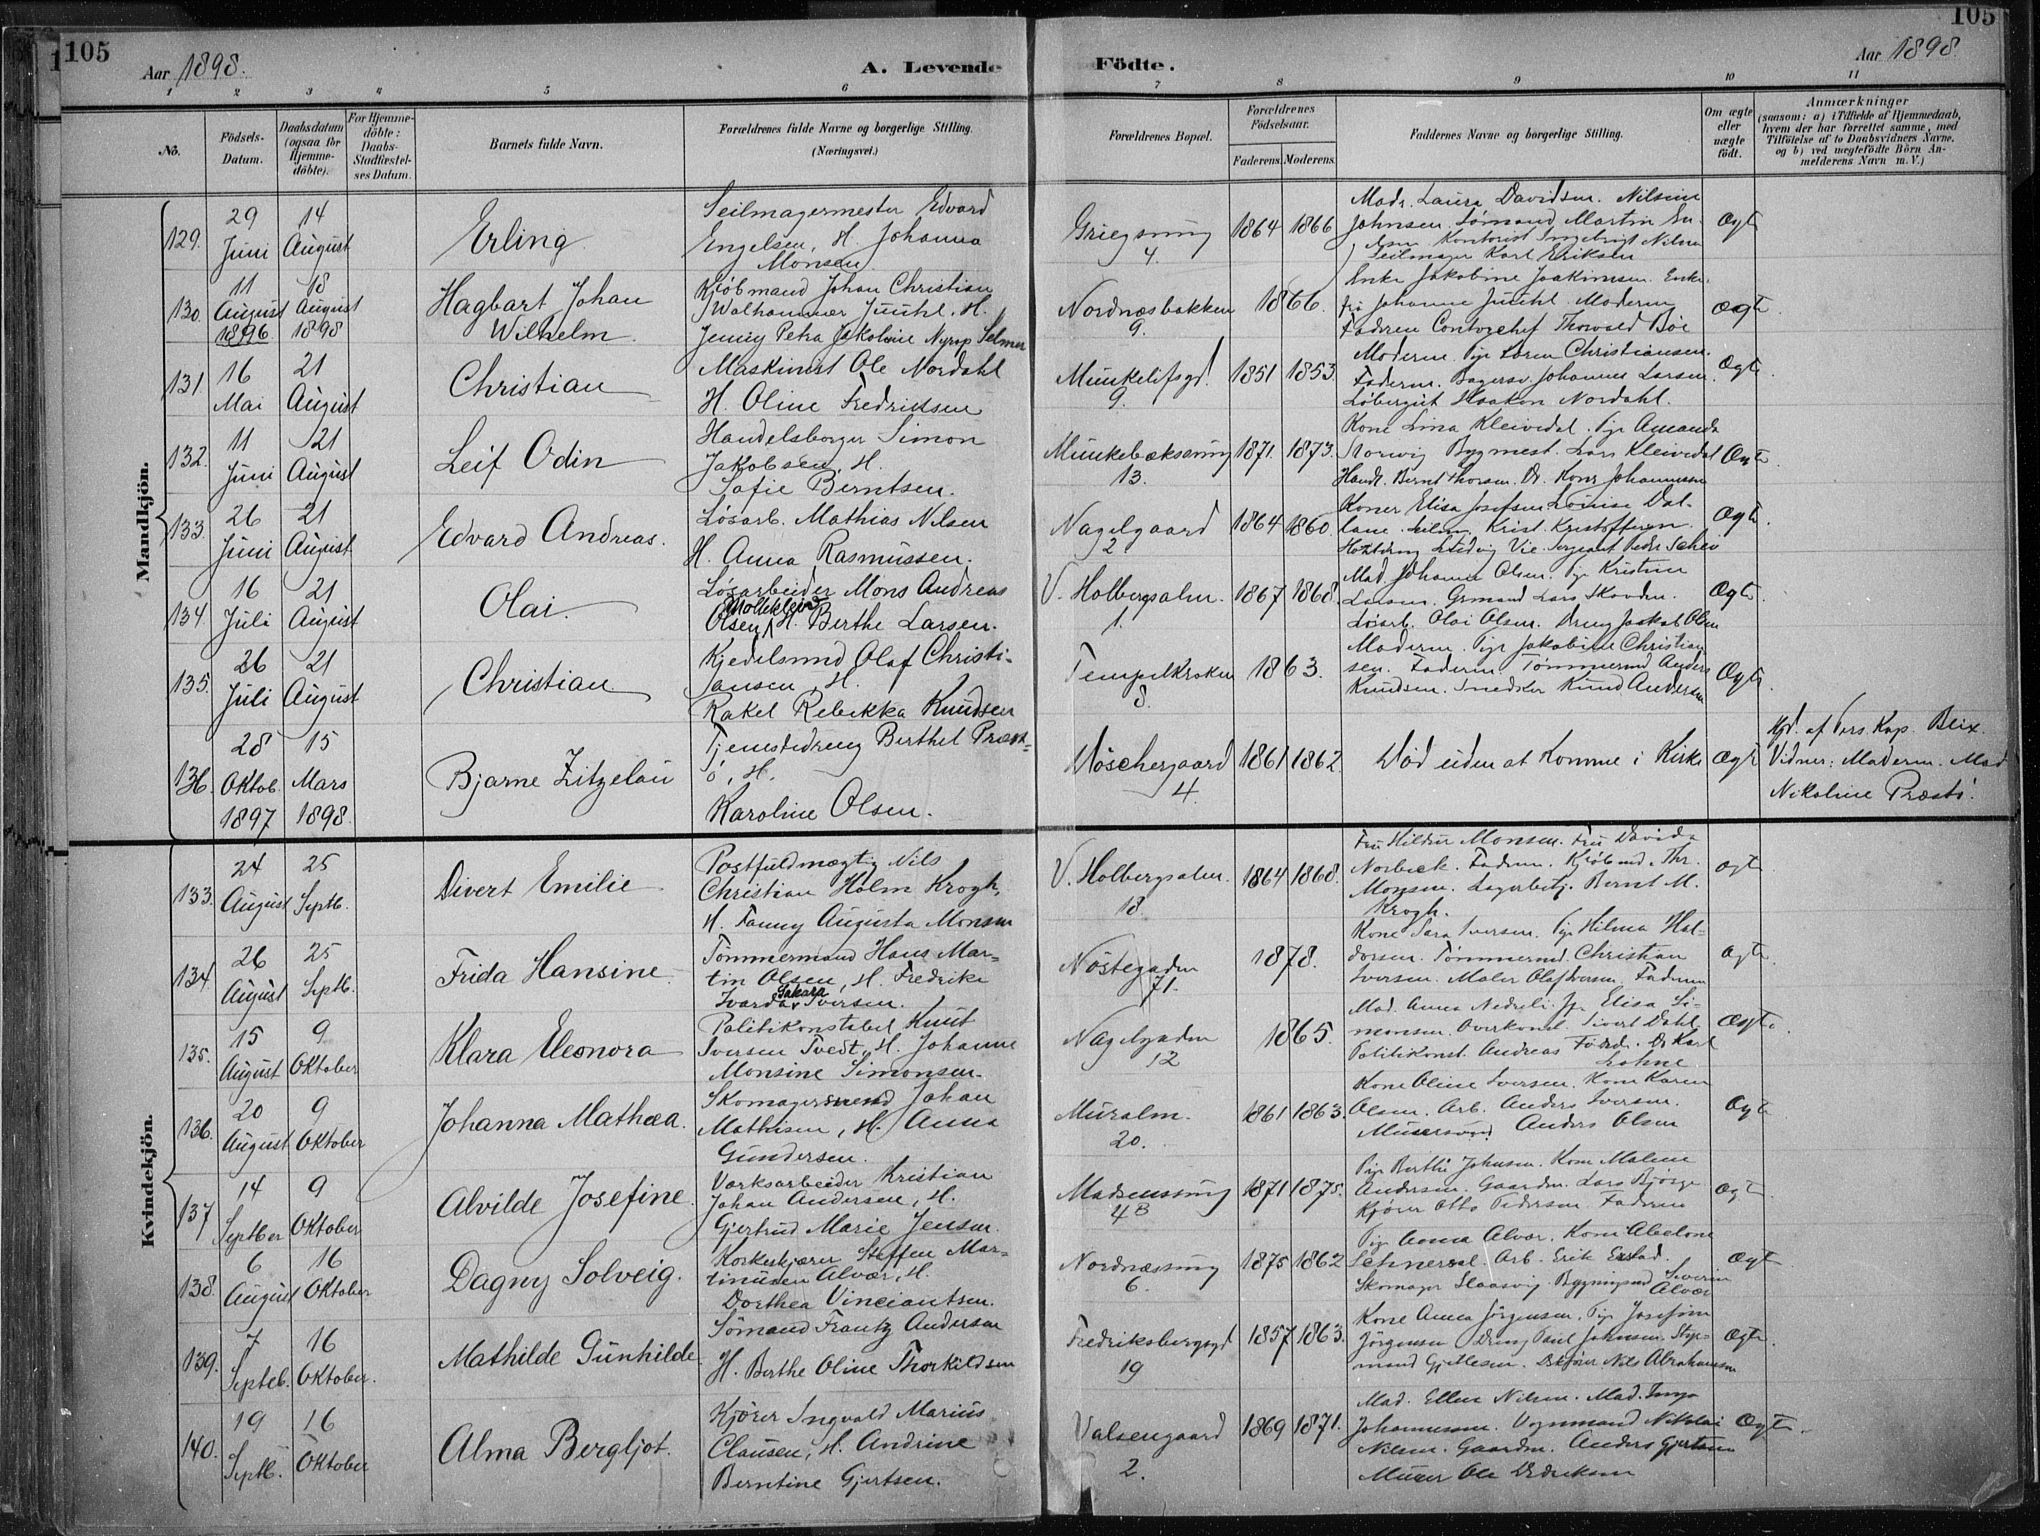 105
Aar 1898.
A. Levende Födte.
Aar 1898.
105
1 2 3 4 5 6 7 8 9 10 11
No.
Födsels-Datum.
Daabsdatum (ogsaa for Hjemme-döbte).
For Hjemme-döbte: Daabs-Stadfæstel-ses Datum.
Barnets fulde Navn.
Forældrenes fulde Navne og borgerlige Stilling. (Næringsvei.)
Forældrenes Bopæl.
Forældrenes Födselsaar.
Faderens. Moderens.
Faddernes Navne og borgerlige Stilling.
Om ægte eller uægte födt.
Anmærkninger (saasom: a) i Tilfælde af Hjemmedaab, hvem der har forrettet samme, med Tilföielse af to Daabsvidners Navne. og b) ved uægtefödte Börn An-melderens Navn m. V.)
Mandkjön.
129. 29 Juni 14 August
Erling
Seilmagermester Edvard
Engelsen, H. Johanna
Monsen
Griegsmug 4.
1864 1866
Madr. Laura Davidsen. Nilsine
Johnsen. Sømand Martin
Kontorist Ingebrigt Nilsen
Seilmager Karl Eriksen
Ægte
130. 11 August 1896 18 August 1898
Hagbart Johan
Wilhelm
Kjøbmand Johan Christian
Walhammer Juuhl, H.
Jenny Petra Jakobine Nyrop Selmer
Nordnæsbakken 9.
1866.
Enke Jakobine Joakimsen. Enke-
fru Johanne Juuhl. Moderen
Faderen Contorchef Thorvald Böe
Ægte
131. 16 Mai 21 August
Christian
Maskinist Ole Nordahl
H. Oline Fredriksen
Munkelifsgd. 9.
1851 1853.
Moderen. Pige Loren Christiansen.
Faderen. Bagersv. Johannes Larsen.
Løbergut Haakon Nordahl.
Ægte
132. 11 Juni 21 August
Leif Odin
Handelsborger Simon
Jakobsen, H.
Sofie Berntsen.
Munkebæksmug 13.
1871. 1873.
Kone Lina Kleivedal. Pige Amanda
Storwig Bygmest. Lars Kleivedal
Handl. Bernt Thorsen. Dr. Kons Johannessen
Ægte
133. 26 Juni 21 August
Edvard Andreas.
Løsarb. Mathias Nilsen
H. Anna Rasmussen.
Nagelgaard 2
1864 1860.
Koner Elisa Josefsen Louise Dal-
lane. Krist. Kristoffersen.
Ludvig Vie. Sergeant Peder Schei
Ægte
134. 16 Juli 21 August
Olai.
Løsarbeider Mons Andreas
Olsen Mollekleiv H. Berthe Larsen.
V. Holbergsalm. 1.
1867 1868.
Mad. Johanne Olsen. Pige Kristine
Larsen. Grmand Lars Skovden.
Løsarb. Olai Olsen. Dreng Jaakob Olsen
Ægte
135. 26 Juli 21 August
Christian
Kjedelsmed Olaf Christi-
ansen, H.
Rakel Rebekka Knudsen
Tempelkroken 8.
1863.
Moderen. Pige Jakobine Christian
sen. Faderen. Tømmermd Anders
Knudsen. Knud Andersen
Ægte
136. 28 Oktob. 1897 15 Mars 1898.
Bjarne Zitzelau
Tjenestedreng Berthel Præst-
ö, H.
Karoline Olsen.
Nöschergaard 4.
1861 1862.
Död uden at komme i Kirke
Ægte
Hjd. af Pers. Kap. Blix.
Vidner: Moderen. Mad.
Nikoline Præstö.
Kvindekjön.
133. 24 August 25 Septb.
Divert Emilie
Postfuldmægtig Nils
Christian Holm Krogh,
H. Fanny Augusta Monsen
V. Holbergsalm. 18.
1864 1868.
Fru Hildur Monsen. Fru Davida
Norbeck. Faderen. Kjøbmd. Thr.
Monsen. Lagerbetj. Bernt M.
Krogh.
Ægte
134. 26 August 25 Septb.
Frida Hansine.
Tømmermand Hans Mar-
tin Olsen, H. Fredrike
Ivarda Sakara Iversen.
Nöstegaden 71.
1878.
Kone Sara Iversen. Pige Hilma Hal-
dorsen. Tømmermd. Christian
Iversen. Maler Olaf Iversen. Faderen
Ægte.
135. 15 August 9 Oktober
Klara Eleonora
Politikonstabel Knut
Iversen Tvedt, H. Johanne
Monsine Simonsen.
Nagelgaden 12
1865.
Mad. Anna Nedreli. Elisa Si-
monsen. Overkonst. Sivert Dahl
Politikonst. Andreas
Lohne
Ægte
136. 20 August 9 Oktober
Johanna Mathæa.
Skomagersvend Johan
Mathisen, H. Anna
Gundersen.
Muralm. 20.
1861 1863.
Kone Oline Iversen. Kone Karen
Olsen. Arb. Anders Iversen.
Murersvend Anders Olsen
Ægte
137 14 Septber 9 Oktober
Alvilde Josefine.
Værksarbeider Kristian
Johan Andersen, H.
Gjertrud Marie Jensen.
Madsensmug 4B
1871 1875.
Pige Berthe Johnsen. Kone Malene
Andersen. Gaardm. Lars Bjöige
Kjører Otto Pedersen Faderen
Ægte
138. 6 August 16 Oktober
Dagny Solveig.
Korkeskjærer Steffen Mar-
tinusen Alvær, H.
Dorthea Vinciantsen.
Nordnæssmug 6.
1875 1862
Pige Anna Alvær. Kone Abelone
Arb. Erik Erstad.
Skomager Slaasvig. Severin
Alvær
Ægte
139. 7 Septeb. 16 Oktober.
Mathilde Gunhilde.
Sömand Frantz Andersen
H. Berthe Oline Thorkildsen
Fredriksbergsgd 19
1857 1863.
Kone Anna Jörgensen. Pige Josefine
Jörgensen Dreng Paul Johnsen. Styr-
mand Nils Abrahamsen
Ægte.
140. 19 Septb. 16 Oktober
Alma Bergljot.
Kjører Ingvald Marius
Clausen, H. Andrine
Berntine Gjertsen.
Valsengaard 2.
1869 1871.
Mad. Ellen Nilsen. Mad. Inga
Johannessen. Vognmand Nikolai
Nilsen. Gaardm. Anders Gjertsen
Murer Ole Dedriksen
Ægte.